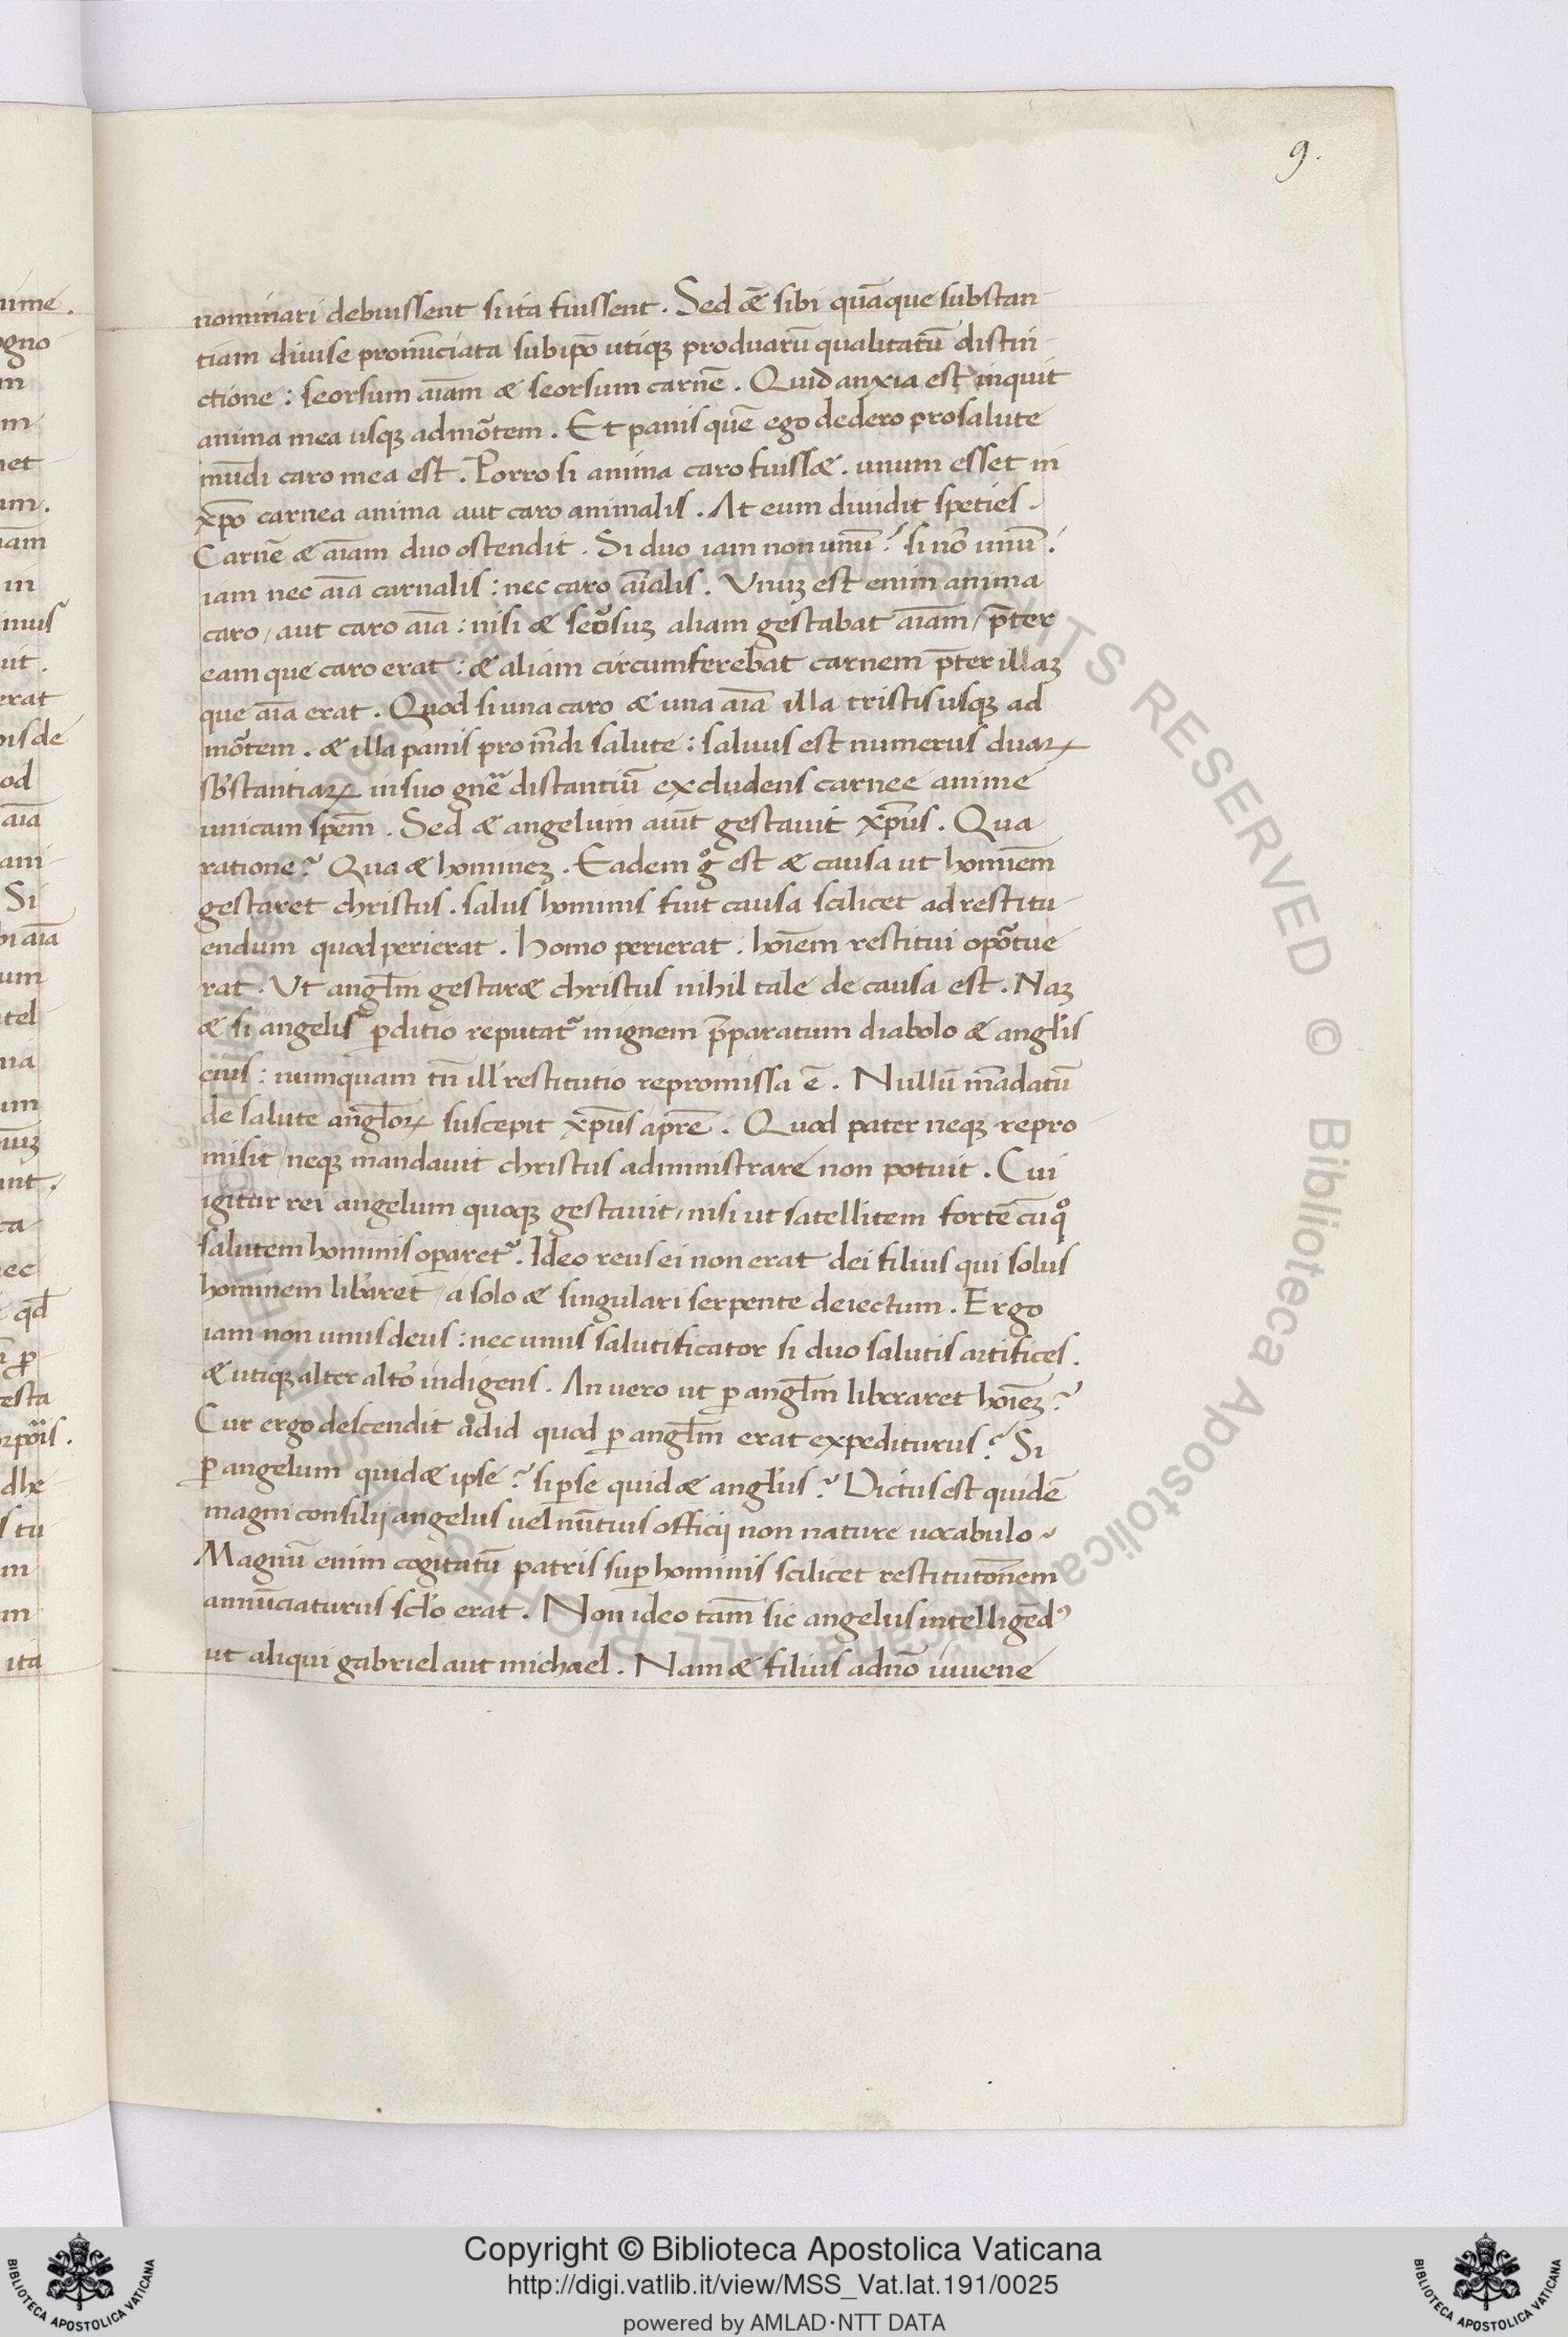 9.
nominari debuissent si ita fuissent. Sed &̄ sibi quāque substan-
tiam diuise pronūciata subip̄o utiqꝫ produarū qualitatū distin-
ctione: seorsum aīam & seorsum carnē. Quid anxia est inquit
anima mea usqꝫ admōtem. Et panis quē ego dedero prosalute
mūdi caro mea est. Porro si anima caro fuiss&. unum esset in
xp̄o carnea anima aut caro animalis. At eum diuidit speties.
Carnē & aīam duo ostendit. Si duo iam non unū? si nō unū.
iam nec aīa carnalis: nec caro aīalis. Vnuꝫ est enim anima
caro / aut caro aīa: nisi & seorsuꝫ aliam gestabat aīam / p̄ter
eam que caro erat: & aliam circumferebat carnem p̄ter illaꝫ
que aīa erat. Quod si una caro & una aīa illa tristis usqꝫ ad
mōtem. & illa panis pro m̄di salute: saluus est numerus duaꝝ
sb̄stantiaꝝ in suo gn̄e distantiū excludens carnee anime
unicam spēm. Sed & angelum aiūt gestauit xp̄us. Qua
ratione? Qua & homineꝫ. Eadem gͦ est & causa ut homiēm
gestaret christus. salus hominis fuit causa scilicet ad restitu-
endum quod perierat. Homo perierat: hoīem restitui opōtue
rat. Ut angl̄m gestar& christus nihil tale de causa est. Naꝫ
& si angelis p̱ditio reputat᷑ in ignem p̄paratum diabolo & angl̄is
eius: nunquam tn̄ ill' restitutio repromissa ē. Nullū mādatū
de salute angl̄oꝝ suscepit xp̄us apr̄e. Quod pater neqꝫ repro
misit / neqꝫ mandauit christus administrare non potuit. Cui
igitur rei angelum quoqꝫ gestauit / nisi ut satellitem fortē cū qͦ
salutem hominis oꝑaret᷑. Ideo reus ei non erat dei filius qui solus
hominem lib'aret / a solo & singulari serpente deiectum. Ergo
iam non unus deus: nec unus salutificator si duo salutis artifices.
& utiqꝫ alter alt'o indigens. An uero ut ꝑ angl̄m liberaret hoīeꝫ?
Cur ergo descendit ad id quod ꝑ angl̄m erat expediturus? Si
ꝑ angelum quid & ipse? si pse quid & angl̄us? Dictus est quidē
magni consilij angelus uel nūtius officij non nature uocabulo.
Magnū enim cogitatū patris suꝑ hominis scilicet restitutōnem
annūciaturus scl̄o erat. Non ideo tam̄ sic angelus intelligēdꝰ
ut aliqui gabriel aut michael. Nam & filius adnō iuuene
Copyright © Biblioteca Apostolica Vaticana
http://digi.vatlib.it/view/MSS_Vat.lat.191/0025
powered by AMLAD·NTT DATA